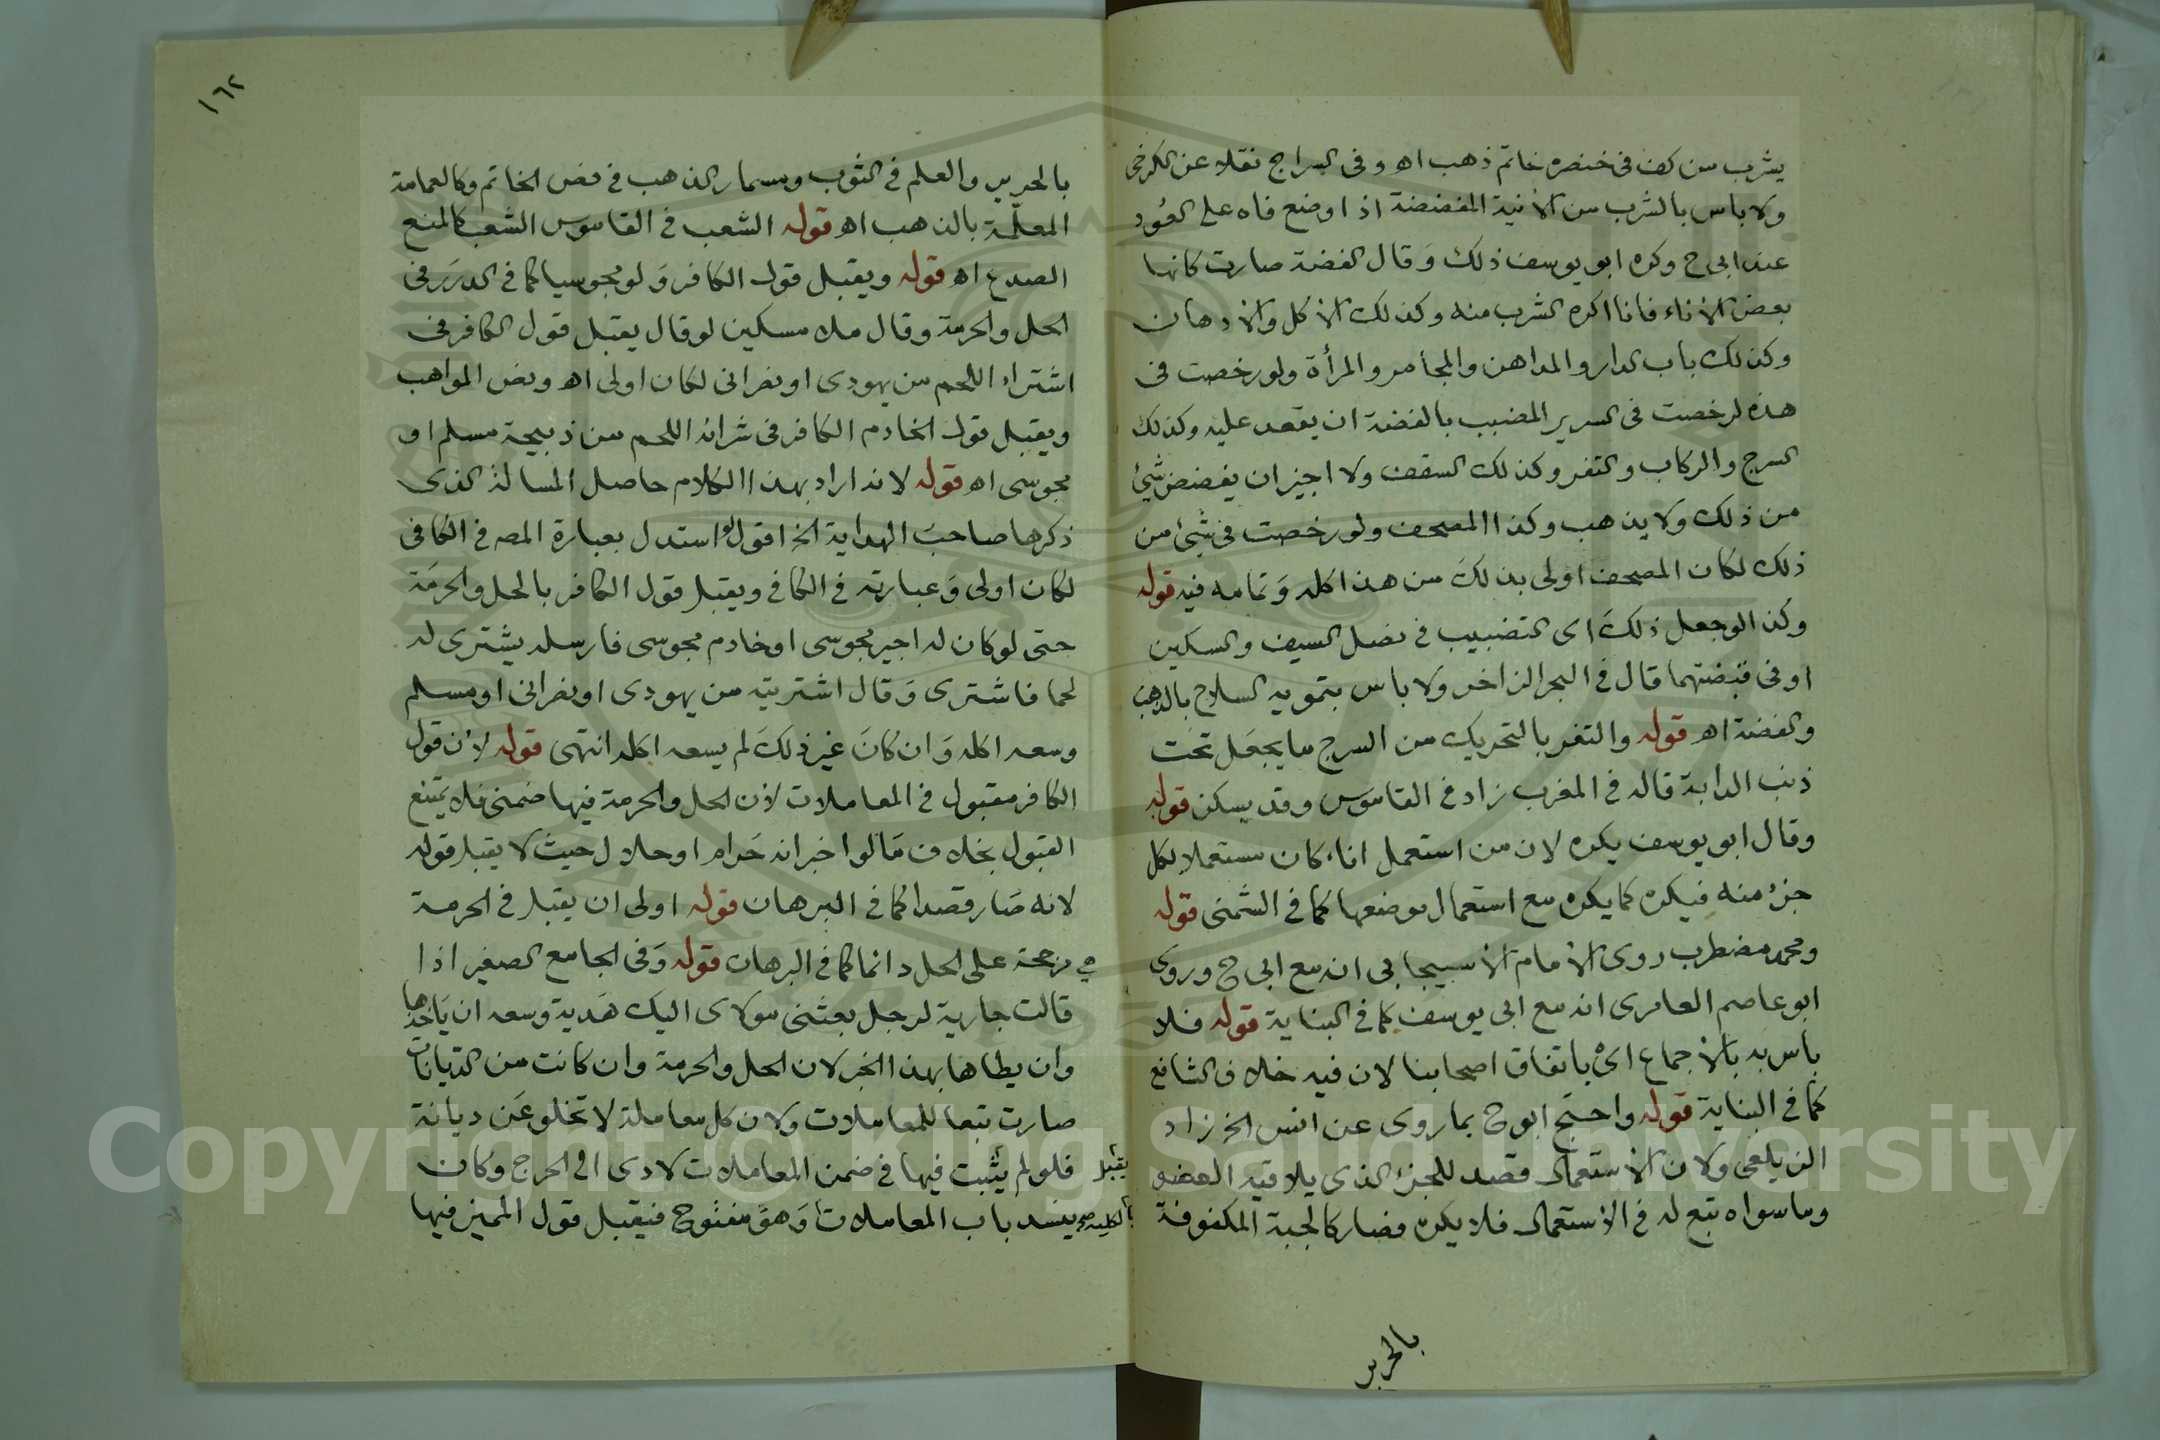 يشرب من كف في خنصره خاتم ذهب اه وفي السراج نقلا عن الكرخي
ولا باس بالشرب من الآنية المفضضة اذا وضع فاه على العود
عند ابي ح وكره ابو يوسف ذلك وقال الفضة صارت كانها
بعض الاناء فانا اكره الشرب منه وكذلك الاكل والادهان
وكذلك باب الدار والمداهن والمجامر والمرأة ولو رخصت في
هذه لرخصت في السرير المضبب بالفضة ان يقعد عليه وكذلك
السرج والركاب والثفر وكذلك السقف ولا اجيز ان يفضض شيئ
من ذلك ولا يذهب وكذا المصحف ولو رخصت في شيئ من
ذلك لكان المصحف اولى بذلك من هذا كله وتمامه فيه قوله
وكذا لو جعل ذلك اى التضبيب في نصل السيف والسكين
او في قبضتهما قال في البحر الزاخر ولا باس بتمويه السلاح بالذهب
والفضة اه قوله والثفر بالتحريك من السرج ما يجعل تحت
ذنب الدابة قاله في المغرب زاد في القاموس وقد يسكن قوله
وقال ابو يوسف يكره لان من استعمل اناء كان مستعملا لكل
جزء منه فيكره كما يكره مع استعمال موضعها كما في الشمنى قوله
ومحمد مضطرب روى الامام الأسبيجابى انه مع ابى ح وروى
ابو عاصم العامرى انه مع ابى يوسف كما في البناية قوله فلا
بأس به بالأجماع اى باتفاق اصحابنا لان فيه خلاف الشافع
كما في البناية قوله واحتج ابو ح بما روى عن انس الخ زاد
الزيلعى ولان الاستعمال قصد للجزء الذي يلاقيه العضو
وما سواه تبع له في الاستعمال فلا يكره فصار كالجبة المكفوفة
بالحرير
١٦٢
بالحرير والعلم في الثوب ومسمار الذهب في فص الخاتم وكالعمامة
المعلمة بالذهب اه قوله الشعب في القاموس الشعب كالمنع
الصدع اه قوله ويقبل قول الكافر ولو مجوسيا كما في الدرر في
الحل والحرمة وقال ملا مسكين لو قال يقبل قول الكافر في
اشتراء اللحم من يهودى او نصرانى لكان اولى اه ونص المواهب
ويقبل قول الخادم الكافر في شرائه اللحم من ذبيحة مسلم او
مجوسى اه قوله لانه اراد بهذا الكلام حاصل المسالة الذى
ذكرها صاحب الهداية الخ اقول لو استدل بعبارة المصه في الكافي
لكان اولى وعبارته في الكافي ويقبل قول الكافر بالحل والحرمة
حتى لو كان له اجير مجوسى او خادم مجوسى فارسله يشترى له
لحما فاشترى وقال اشتريته من يهودى او نصرانى او مسلم
وسعه اكله وان كان غير ذلك لم يسعه اكله انتهى قوله لان قول
الكافر مقبول في المعاملات لان الحل والحرمة فيها ضمنى فلا يمتنع
القبول بخلاف ما لو اخبر انه حرام او حلال حيث لا يقبل قوله
لانه صار قصدا كما في البرهان قوله اولى ان يقبل في الحرمة
مرجحة على الحل دائما كما في البرهان قوله وفي الجامع الصغير اذا
قالت جارية لرجل بعثنى مولاى اليك هدية وسعه ان يأخذها
وان يطاها بهذا الخبر لان الحل والحرمة وان كانت من الديانات
صارت تبعا للمعاملات ولان كل معاملة لا تخلو عن ديانة
فلو لم يثبت فيها في ضمن المعاملات لادى الى الحرج وكان
ينسد باب المعاملات وهو مفتوح فيقبل قول المميز فيها
يقبل
بالكلية صح
Copyright © King Saud University